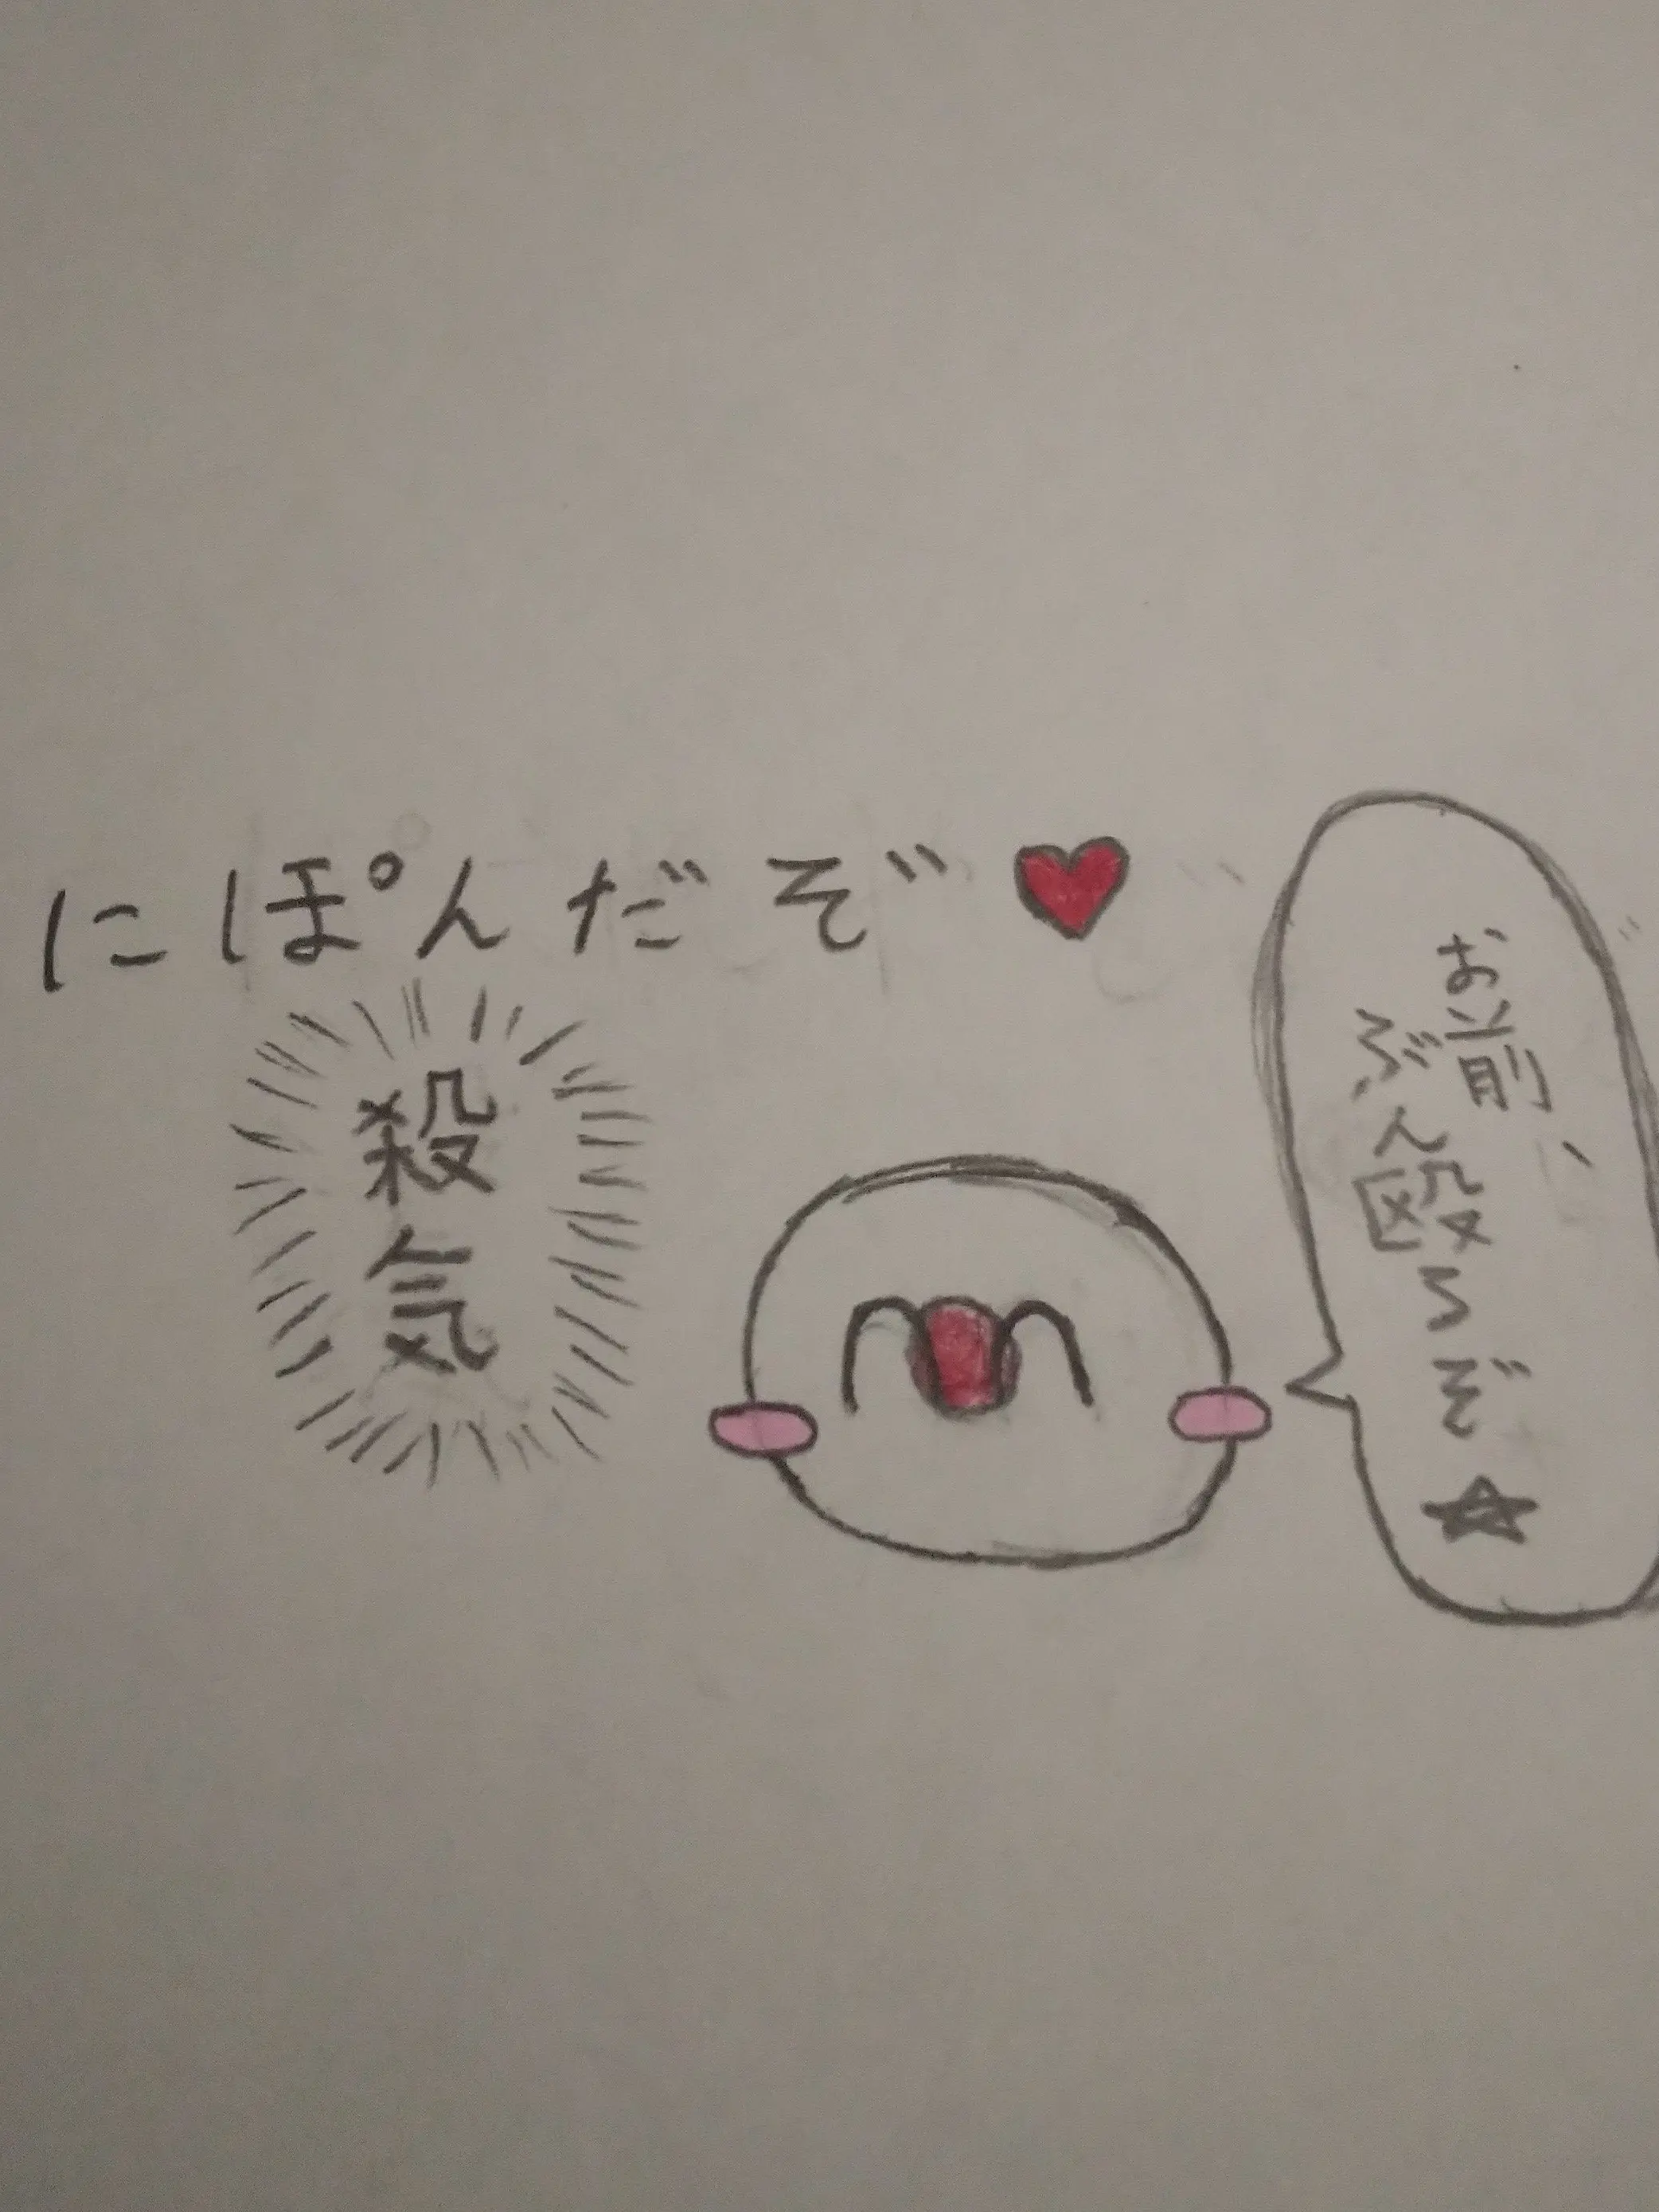 にぽんだぞ♥
殺
気
お前、
ぶん殴るぞ☆